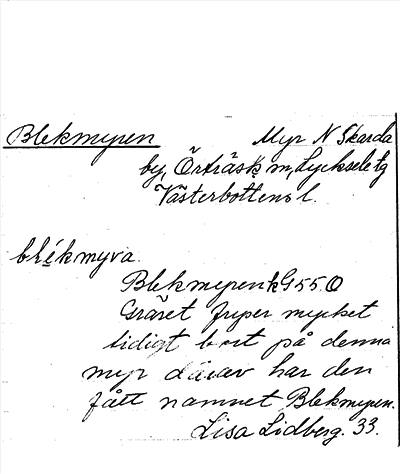 Blekmyren Myr N Skarda
by, Örträsk sn, Lycksele tg
Västerbottens l.
blékmyra.
Blekmyren k G55Q
Gräset fryser mycket
tidigt bort på denna
myr därav har den
fått namnet Blekmyren.
Lisa Lidberg. 33.